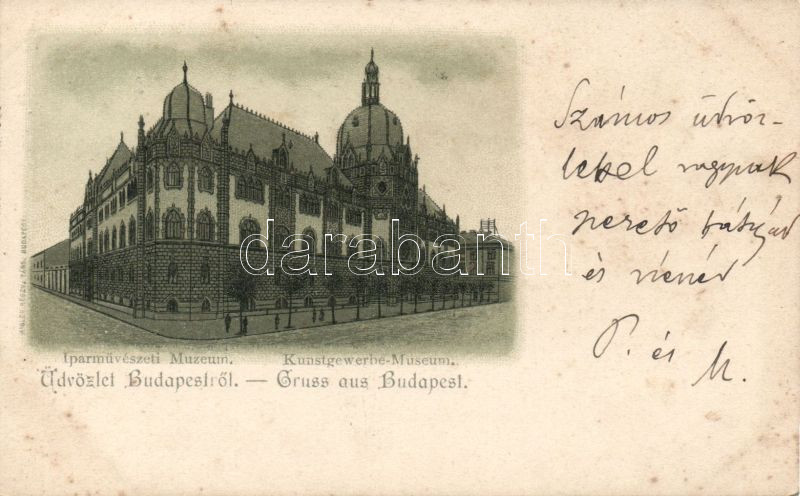 Számos üdvöz-
lettel vagyunk
szerető bátyád
és nénéd
P. és
M.
darabanth
Iparművészeti Muzeum. Kunstgewerbe-Museum.
Üdvözlet Budapestről. — Gruss aus Budapest.